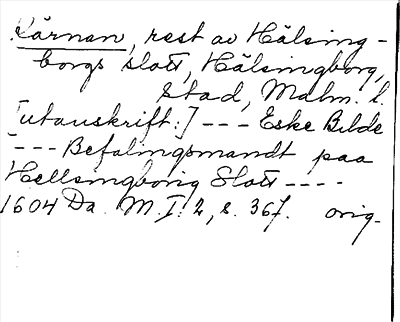 Kärnan, rest av Hälsing-
borgs slott, Hälsingborg,
stad, Malm. l.
[utanskrift:] --- Eske Bilde
--- Befalingsmandt paa
Hellsingborig Slott ----
1604 Da. M. I: 2, s. 367. orig.